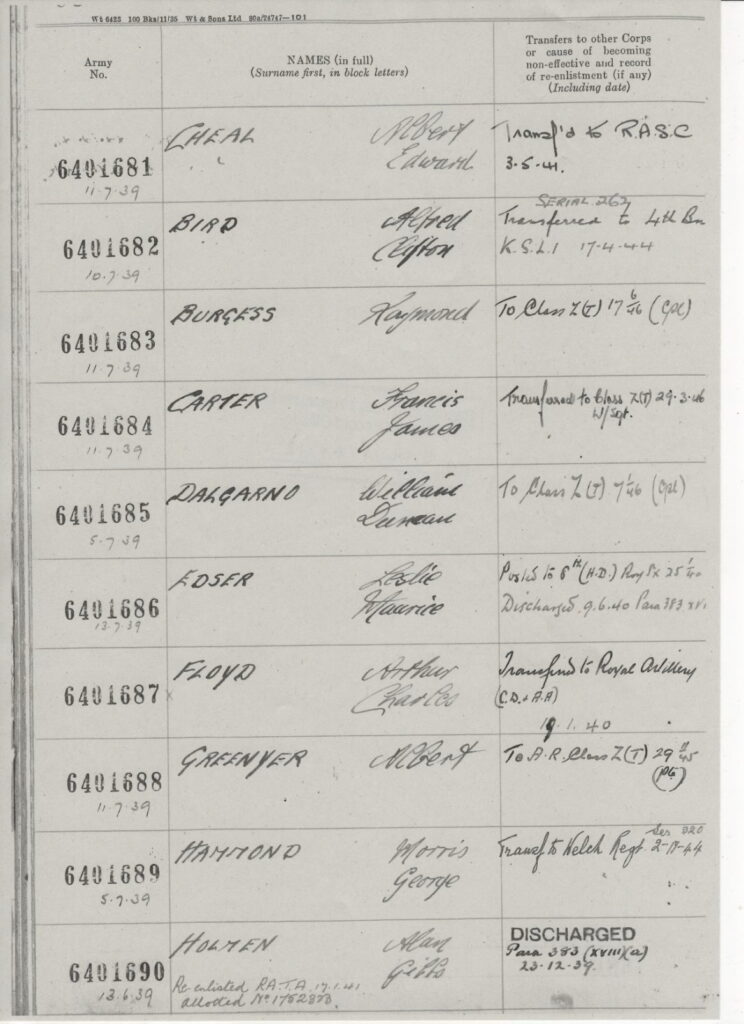 Wt 6423 100 Bks/11/35 Wt & Sons Ltd 80a/24747—101
Army
No.
NAMES (in full)
(Surname first, in block letters)
Transfers to other Corps
or cause of becoming
non-effective and record
of re-enlistment (if any)
(Including date)
6401681
11.7.39
CHEAL
Albert
Edward
Transf'd to R.A.S.C
3.5.41.
6401682
10.7.39
BIRD
Alfred
Clifton
SERIAL 262
Transferred to 4th Bn
K.S.L.I 17-4-44
6401683
11.7.39
BURGESS
Raymond
To Class Z(T) 17 6/46 (Cpl)
6401684
11.7.39
CARTER
Francis
James
Transferred to Class Z(T) 29.3.46
W/Sgt.
6401685
5.7.39
DALGARNO
William
Duncan
To Class Z(T) 7 1/46 (Cpl)
6401686
13.7.39
EDSER
Leslie
Maurice
Posted to 6th (H.D.) Roy Sx 25 1/40
Discharged 9.6.40 Para 383 XVI
6401687
FLOYD
Arthur
Charles
Transferred to Royal Artillery
(C.D. & A.A)
19.1.40
6401688
11.7.39
GREENYER
Albert
To A.R. Class Z(T) 29 /45
(Pte)
6401689
5.7.39
HAMMOND
Morris
George
Ser 320
Transf to Welch Regt 2-11-44
6401690
13.6.39
HOLMEN
Alan
Gibbs
Re-enlisted R.A.T.A. 17.1.41
allotted No
DISCHARGED
Para 383 (XVIII)(a)
23-12-39.